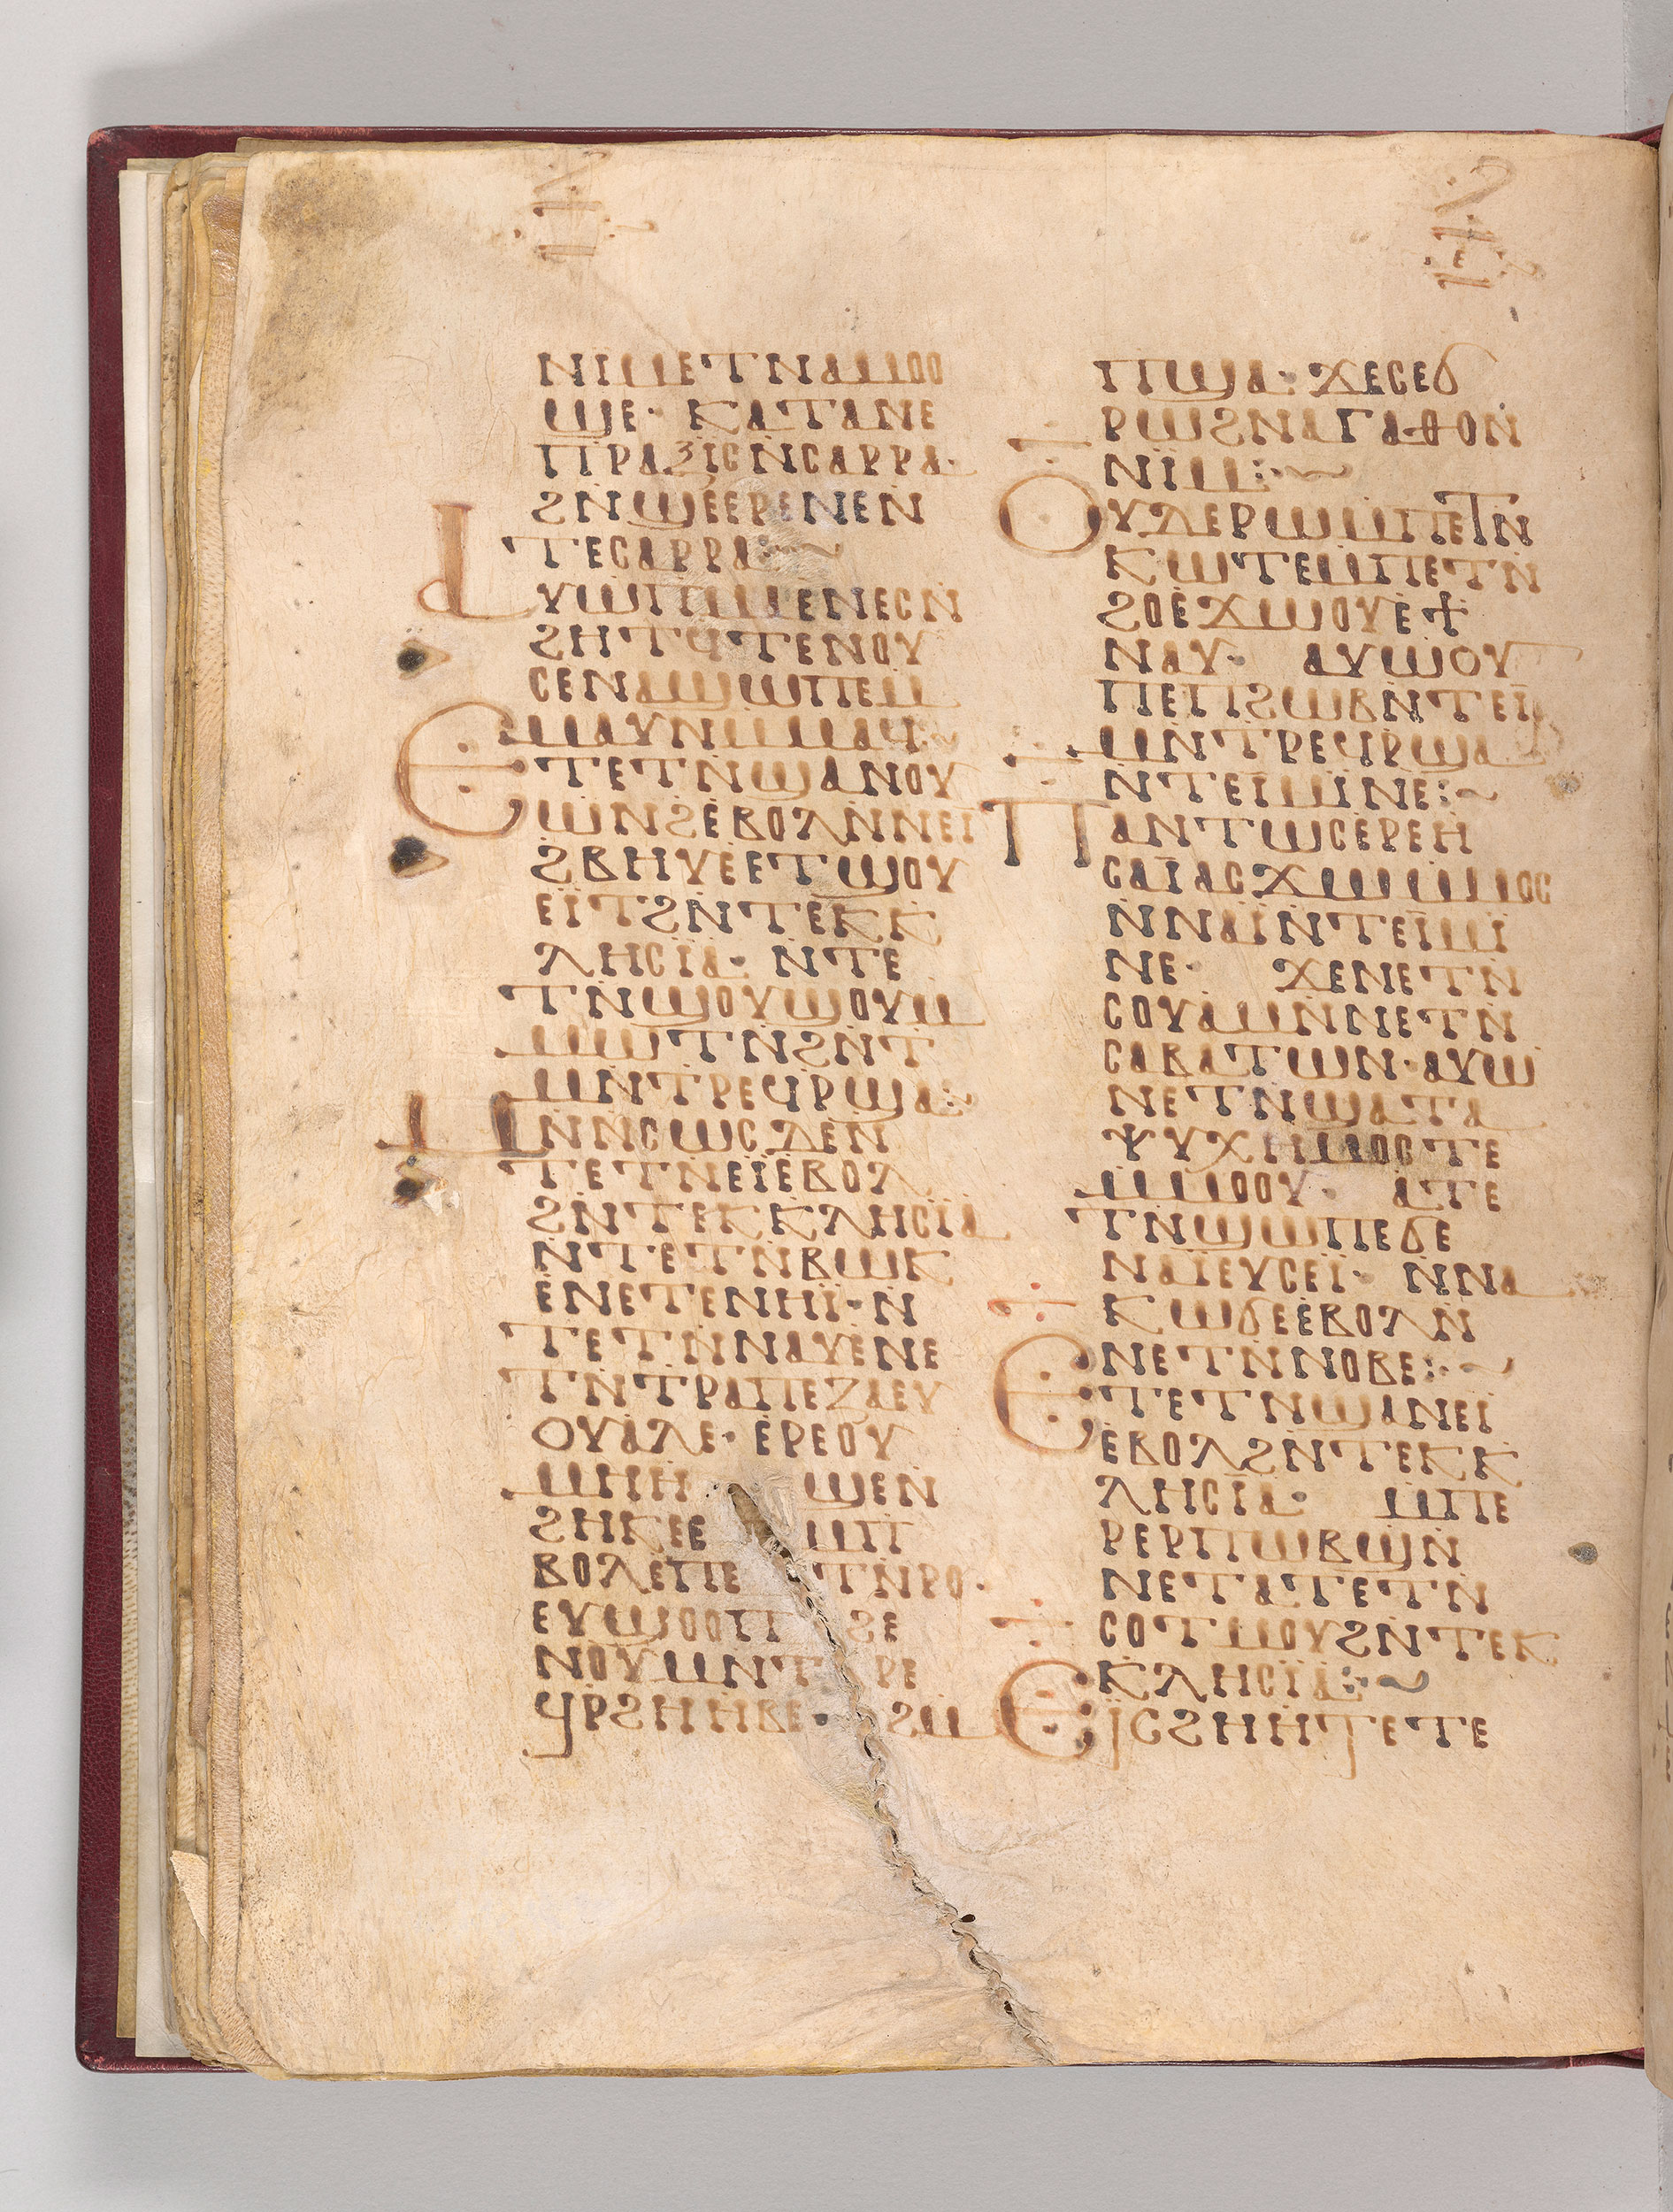 ⲛⲓⲙⲉⲧⲛⲁⲙⲟⲟ
ϣⲉ· ⲕⲁⲧⲁⲛⲉ
ⲡⲣⲁⲝⲓⲥⲛⲥⲁⲣⲣⲁ·
ϩⲛϣⲉⲉⲣⲉⲛⲉⲛ
ⲧⲉⲥⲁⲣⲣⲁ:~
ⲁⲩⲱⲡⲙⲉⲛⲉⲥⲛ
ϩⲏⲧϥⲧⲉⲛⲟⲩ
ⲥⲉⲛⲁϣⲱⲡⲉⲙ
ⲙⲁⲩⲛⲙⲙⲁϥ:~
ⲉⲧⲉⲧⲛϣⲁⲛⲟⲩ
ⲱⲛϩⲉⲃⲟⲗⲛⲛⲉⲓ
ϩⲃⲏⲩⲉⲉⲧϣⲟⲩ
ⲉⲓⲧϩⲛⲧⲉⲕⲕ
ⲗⲏⲥⲓⲁ· ⲛⲧⲉ
ⲧⲛϣⲟⲩϣⲟⲩⲙ
ⲙⲱⲧⲛϩⲛⲧ
ⲙⲛⲧⲣⲉϥⲣϣⲁ:~
ⲙⲛⲛⲥⲱⲥⲇⲉⲛ
ⲧⲉⲧⲛⲉⲓⲉⲃⲟⲗ
ϩⲛⲧⲉⲕⲕⲗⲏⲥⲓⲁ
ⲛⲧⲉⲧⲛⲃⲱⲕ
ⲉⲛⲉⲧⲉⲛⲏⲓ·ⲛ
ⲧⲉⲧⲛⲛⲁⲩⲉⲛⲉ
ⲧⲛⲧⲣⲁⲡⲉⲍⲁⲉⲩ
ⲟⲩⲁⲗⲉ· ⲉⲣⲉⲟⲩ
ⲙⲏⲏ ϣⲉⲛ
ϩⲏⲕⲉⲉ ⲙⲡ
ⲃⲟⲗⲉⲡⲉ ⲧⲛⲣⲟ·
ⲉⲩϣⲟⲟⲡ ϩⲉ
ⲛⲟⲩⲙⲛⲧ ⲣⲉ
ϥⲣϩⲏⲏⲃⲉ· ϩⲙ
ⲡϣⲁ· ϫⲉⲥⲉϭ
ⲣⲱϩⲛⲁⲅⲁⲑⲟⲛ
ⲛⲓⲙ:~
ⲟⲩⲇⲉⲣⲱⲙⲡⲉⲧⲛ
ⲕⲱⲧⲉⲙⲡⲉⲧⲛ
ϩⲟⲉϫⲱⲟⲩⲉϯ
ⲛⲁⲩ· ⲁⲩⲱⲟⲩ
ⲡⲉⲡϩⲱⲃⲛⲧⲉⲓ
ⲙⲛⲧⲣⲉϥⲣϣⲁ
ⲛⲧⲉⲓⲙⲓⲛⲉ:~
ⲡⲁⲛⲧⲱⲥⲉⲣⲉⲏ
ⲥⲁⲓⲁⲥϫⲱⲙⲙⲟⲥ
ⲛⲛⲁⲓⲛⲧⲉⲓⲙⲓ
ⲛⲉ· ϫⲉⲛⲉⲧⲛ
ⲥⲟⲩⲁⲙⲛⲛⲉⲧⲛ
ⲥⲁⲃⲁⲧⲱⲛ·ⲁⲩⲱ
ⲛⲉⲧⲛϣⲁⲧⲁ
ⲯⲩⲭⲏⲙⲟⲥⲧⲉ
ⲙⲙⲟⲟⲩ· ⲁⲧⲉ
ⲧⲛϣⲱⲡⲉϭⲉ
ⲛⲁⲓⲉⲩⲥⲉⲓ· ⲛⲛⲁ
ⲕⲱϭⲉⲉⲃⲟⲗⲛ
ⲛⲉⲧⲛⲛⲟⲃⲉ:~
ⲉⲧⲉⲧⲛϣⲁⲛⲉⲓ
ⲉⲃⲟⲗϩⲛⲧⲉⲕⲕ
ⲗⲏⲥⲓⲁ· ⲙⲡⲉ
ⲣⲉⲣⲡⲱⲃϣⲛ
ⲛⲉⲧⲁⲧⲉⲧⲛ
ⲥⲟⲧⲙⲟⲩϩⲛⲧⲉⲕ
ⲕⲗⲏⲥⲓⲁ:~
ⲉⲓⲥϩⲏⲏⲧⲉⲧⲉ